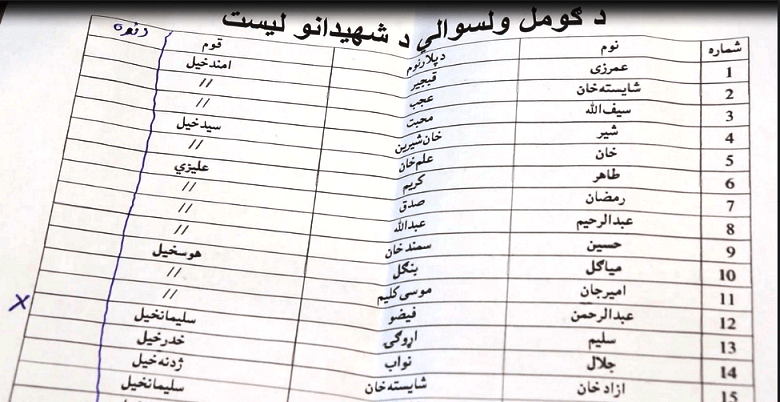 د ګومل ولسوالي د شهیدانو لیست
شماره نوم د پلار نوم قوم
1 عمرزی قبجیر امندخیل
2 شایسته‌خان عجب //
3 سیف‌الله محبت //
4 شیر خان‌شیرین سیدخیل
5 خان علم‌خان //
6 طاهر کریم علیزي
7 رمضان صدق //
8 عبدالرحیم عبدالله //
9 حسین سمندخان //
10 میاگل بنگل هوسخیل
11 امیرجان موسی‌کلیم //
12 عبدالرحمن فیضو // X
13 سلیم اړوگی سلیمانخیل
14 جلال نواب خدرخیل
15 ازادخان شایسته‌خان ژدنه‌خیل
سلیمانخیل